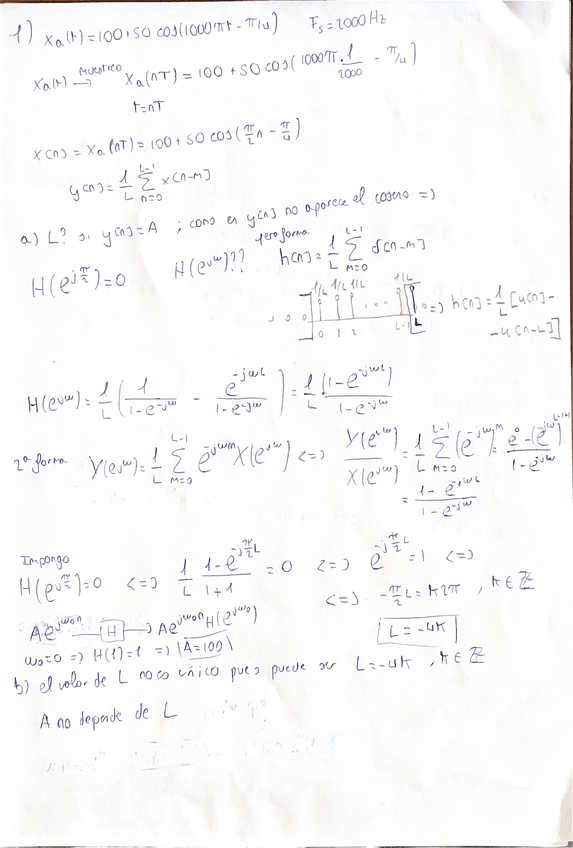 1) xa(t) = 100 + 50 cos(1000πt - π/4)   Fs = 2000 Hz
xa(t) → MUESTREO xa(nT) = 100 + 50 cos(1000π · 1/2000 - π/4)
t=nT
x[n] = xa(nT) = 100 + 50 cos(π/2 n - π/4)
y[n] = 1/L Σ_{m=0}^{L-1} x[n-m]
a) L? si y[n] = A ; como en y[n] no aparece el coseno =>
H(e^{jπ/2}) = 0   H(e^{jω})??   1era forma   h[n] = 1/L Σ_{m=0}^{L-1} δ[n-m]
1/L 1/L 1/L ... 1/L
0 1 2 L-1 L => h[n] = 1/L [u[n] -
- u[n-L]]
H(e^{jω}) = 1/L (1/(1-e^{-jω}) - e^{-jωL}/(1-e^{-jω})) = 1/L (1-e^{-jωL})/(1-e^{-jω})
2ª forma Y(e^{jω}) = 1/L Σ_{m=0}^{L-1} e^{-jωm} X(e^{jω}) <=> Y(e^{jω})/X(e^{jω}) = 1/L Σ_{m=0}^{L-1} (e^{-jω})^m = (e^0 - (e^{-jω})^{L-1+1})/(1-e^{-jω})
= (1-e^{-jωL})/(1-e^{-jω})
Impongo
H(e^{jπ/2}) = 0 <=> 1/L (1-e^{-jπ/2 L})/(1+1) = 0 <=> e^{-jπ/2 L} = 1 <=>
<=> -π/2 L = k2π , k∈ℤ
Ae^{jω0n} → H → Ae^{jω0n} H(e^{jω0})   L = -4k
ω0 = 0 => H(1) = 1 => A = 100
b) el valor de L no es único pues puede ser L = -4k , k∈ℤ
A no depende de L